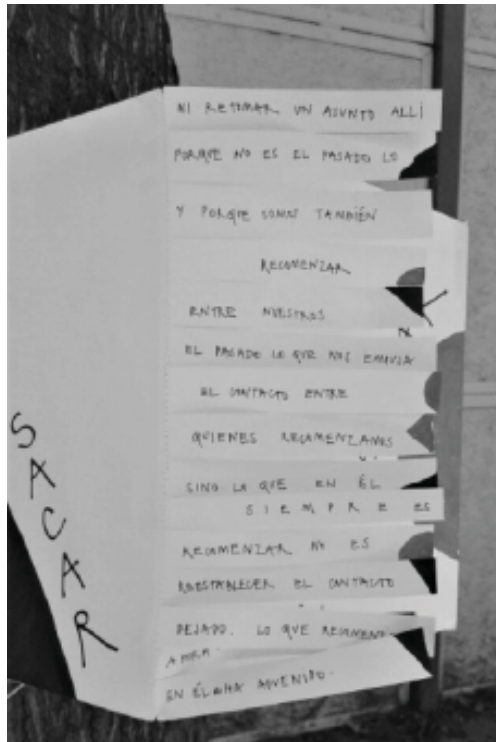 NI RETOMAR UN ASUNTO ALLÍ
PORQUE NO ES EL PASADO LO
Y PORQUE SOMOS TAMBIÉN
RECOMENZAR
ENTRE NUESTROS
EL PASADO LO QUE NOS EMPUJA
EL CONTACTO ENTRE
QUIENES RECOMENZAMOS
SINO LO QUE EN ÉL
SIEMPRE ES
RECOMENZAR NO ES
REESTABLECER EL CONTACTO
DEJADO. LO QUE RECOMENZ
AHORA
EN ÉL HA ADVENIDO.
SACAR